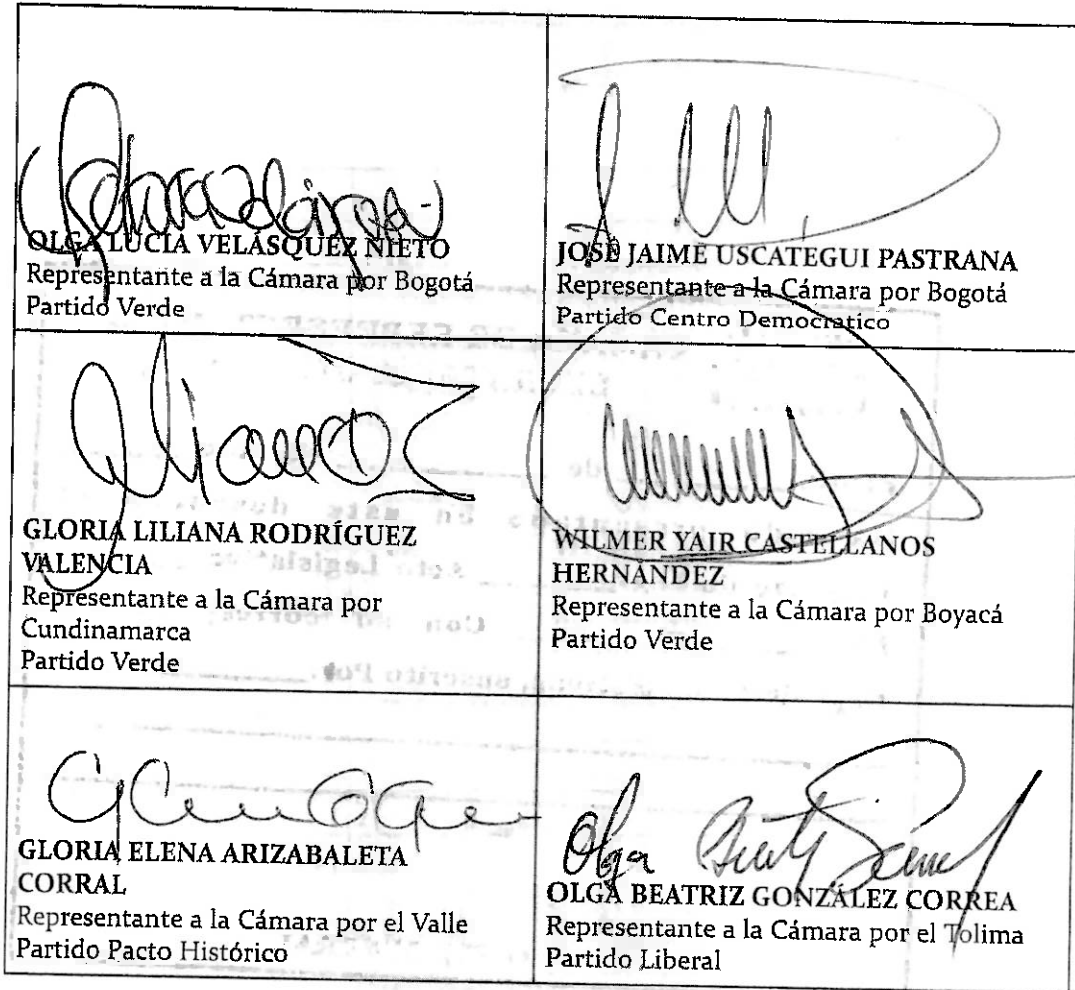 OLGA LUCÍA VELÁSQUEZ NIETO
Representante a la Cámara por Bogotá
Partido Verde
JOSÉ JAIME USCATEGUI PASTRANA
Representante a la Cámara por Bogotá
Partido Centro Democratico
GLORIA LILIANA RODRÍGUEZ
VALENCIA
Representante a la Cámara por
Cundinamarca
Partido Verde
WILMER YAIR CASTELLANOS
HERNÁNDEZ
Representante a la Cámara por Boyacá
Partido Verde
GLORIA ELENA ARIZABALETA
CORRAL
Representante a la Cámara por el Valle
Partido Pacto Histórico
Olga
OLGA BEATRIZ GONZÁLEZ CORREA
Representante a la Cámara por el Tolima
Partido Liberal